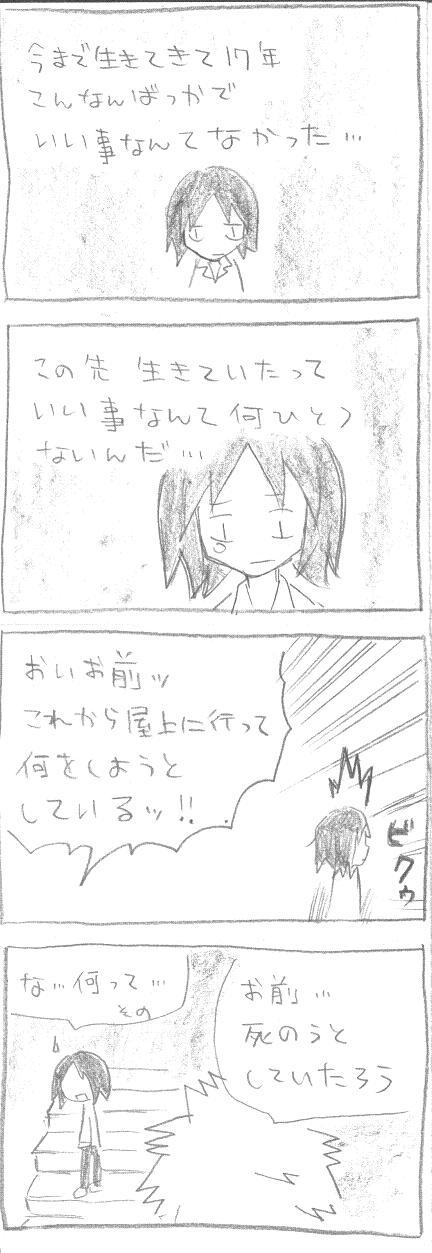 今まで生きてきて17年
こんなんばっかで
いい事なんてなかった…
この先 生きていたって
いい事なんて何ひとつ
ないんだ…
おいお前ッ
これから屋上に行って
何をしようと
しているッ!!
ビクゥ
お前…
死のうと
していたろう
な…何って…
その